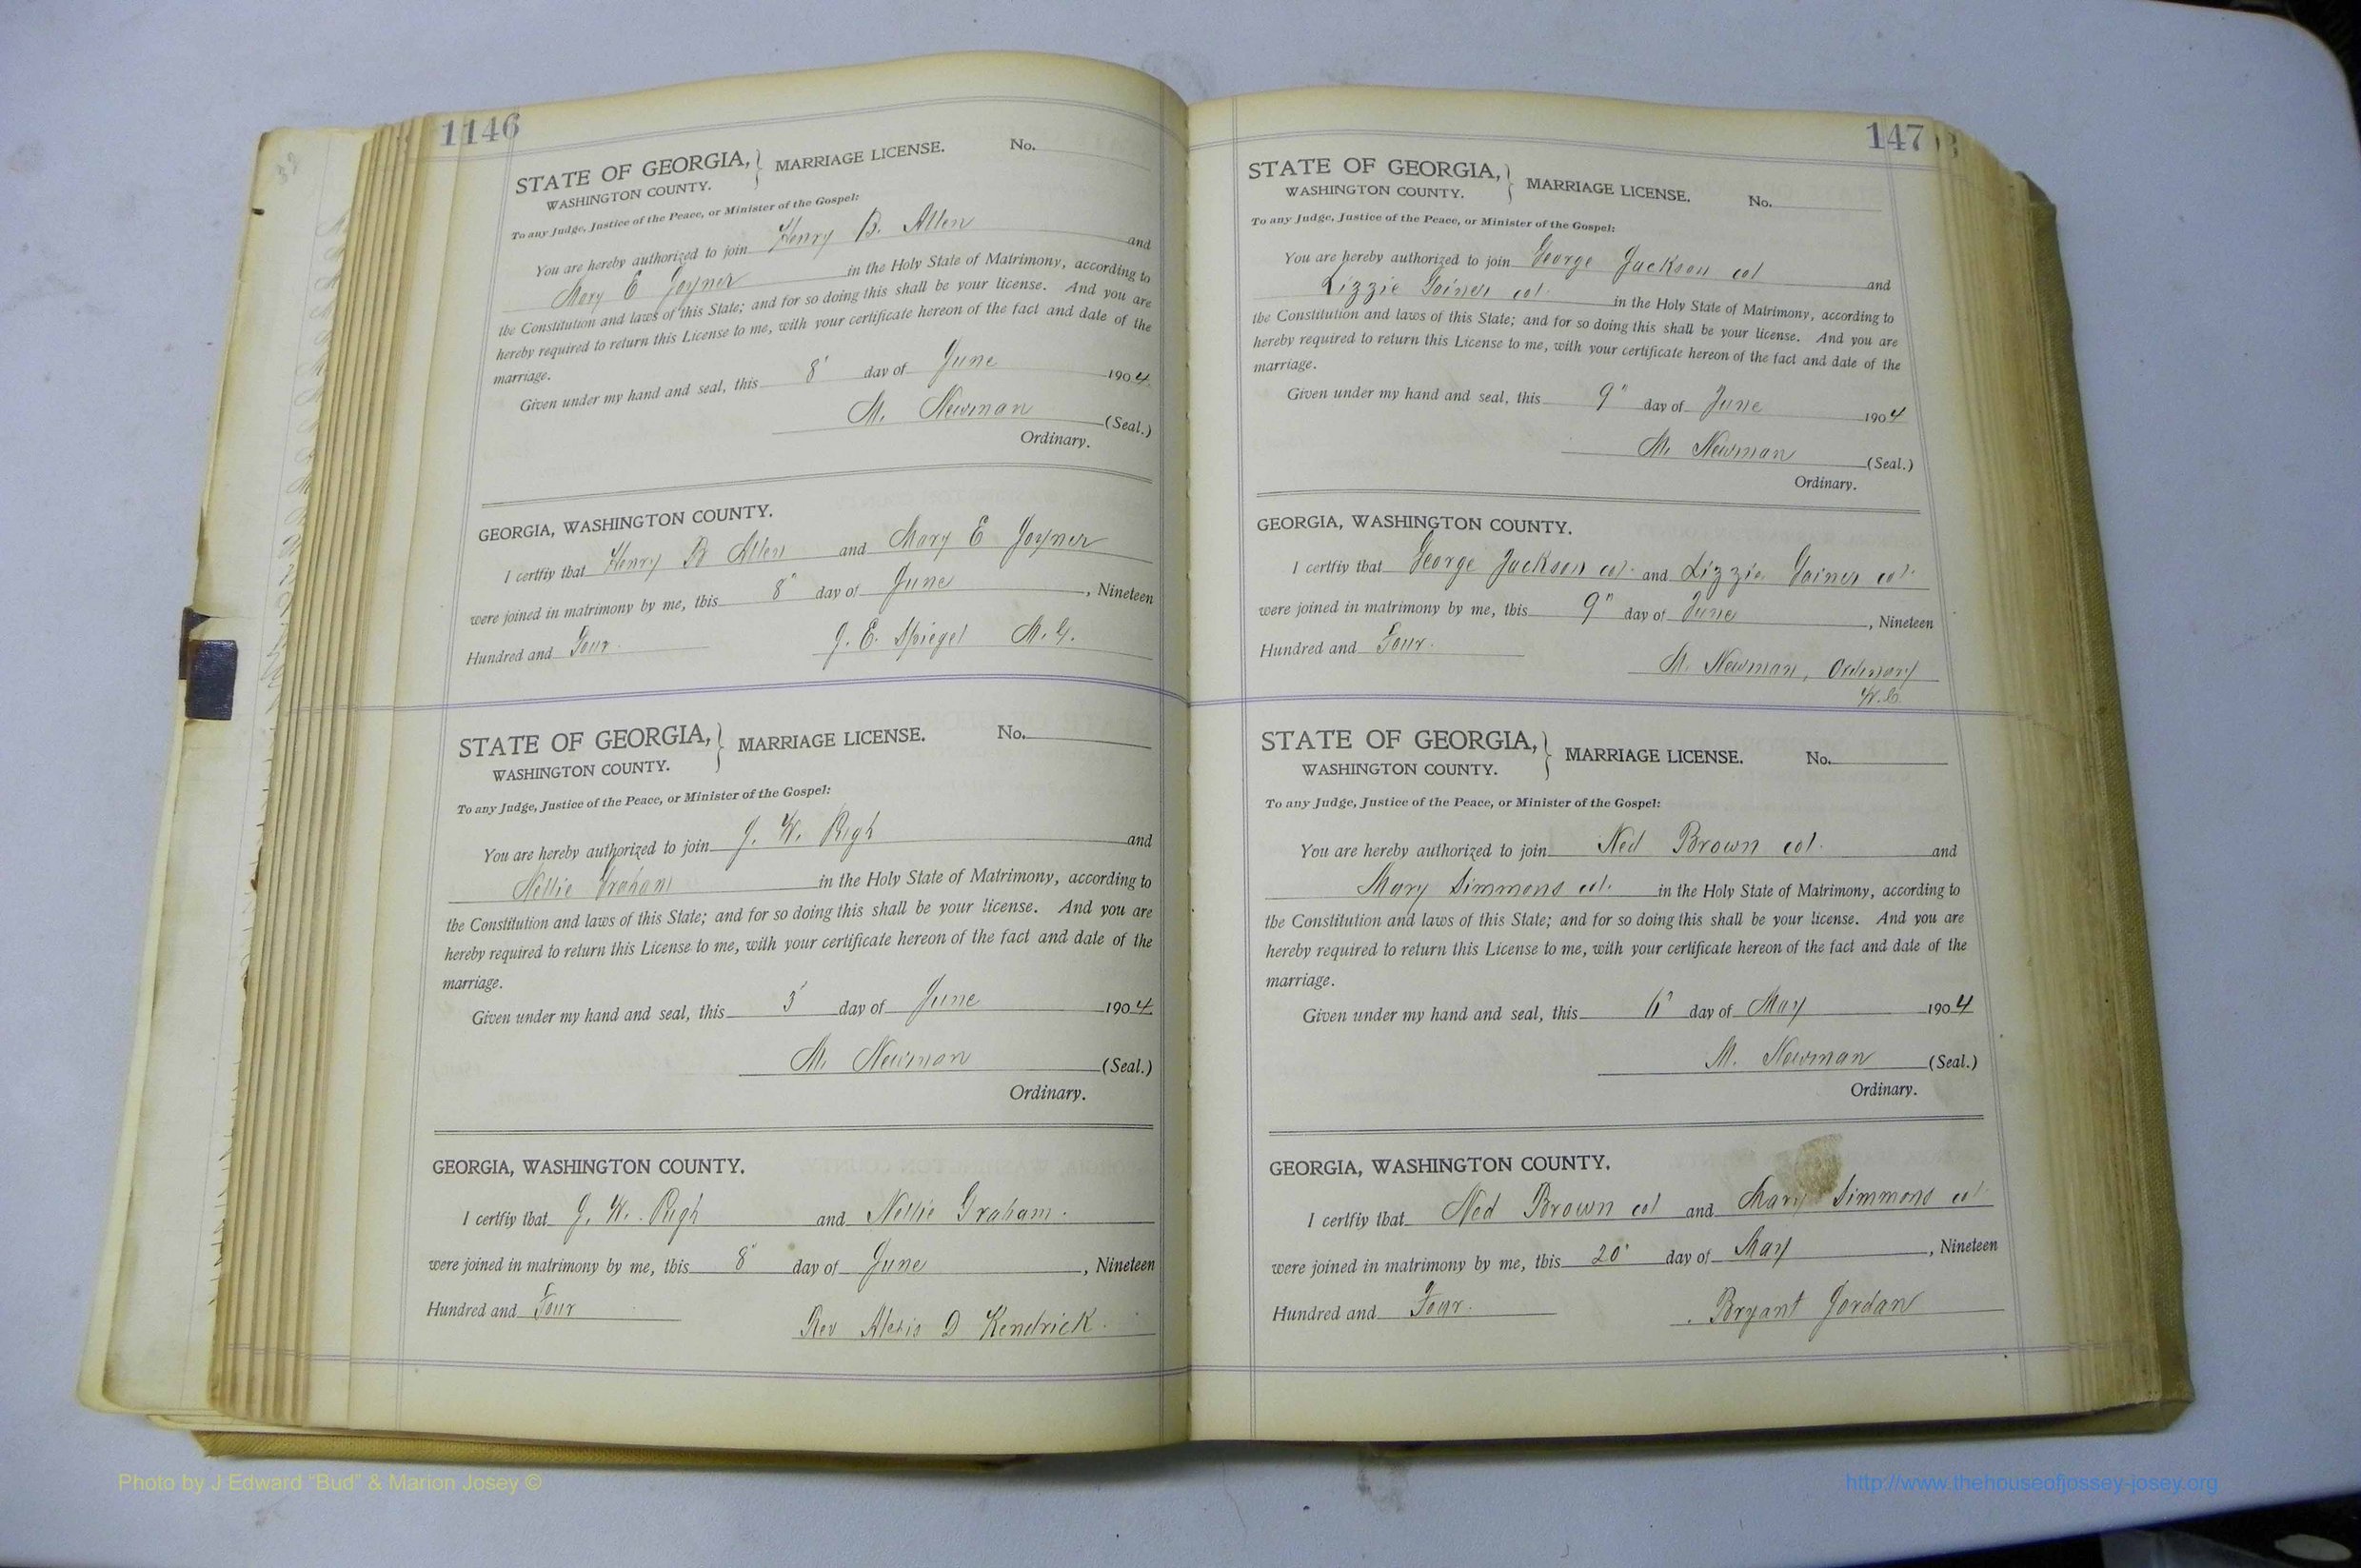 1146
STATE OF GEORGIA, } MARRIAGE LICENSE. No.
WASHINGTON COUNTY.
To any Judge, Justice of the Peace, or Minister of the Gospel:
You are hereby authorized to join Henry B. Allen and
Mary E Joyner in the Holy State of Matrimony, according to
the Constitution and laws of this State; and for so doing this shall be your license. And you are
hereby required to return this License to me, with your certificate hereon of the fact and date of the
marriage.
Given under my hand and seal, this 8" day of June 1904
M. Newman (Seal.)
Ordinary.
GEORGIA, WASHINGTON COUNTY.
I certfiy that Henry B Allen and Mary E Joyner
were joined in matrimony by me, this 8" day of June, Nineteen
Hundred and Four. J. E. Spiegel M.G.
STATE OF GEORGIA, } MARRIAGE LICENSE. No.
WASHINGTON COUNTY.
To any Judge, Justice of the Peace, or Minister of the Gospel:
You are hereby authorized to join J. W. Pugh and
Nellie Graham in the Holy State of Matrimony, according to
the Constitution and laws of this State; and for so doing this shall be your license. And you are
hereby required to return this License to me, with your certificate hereon of the fact and date of the
marriage.
Given under my hand and seal, this 3" day of June 1904
M. Newman (Seal.)
Ordinary.
GEORGIA, WASHINGTON COUNTY.
I certfiy that J. W. Pugh and Nellie Graham.
were joined in matrimony by me, this 8" day of June, Nineteen
Hundred and Four Rev Alexis D Kendrick.
147
STATE OF GEORGIA, } MARRIAGE LICENSE. No.
WASHINGTON COUNTY.
To any Judge, Justice of the Peace, or Minister of the Gospel:
You are hereby authorized to join George Jackson col and
Lizzie Gainer col. in the Holy State of Matrimony, according to
the Constitution and laws of this State; and for so doing this shall be your license. And you are
hereby required to return this License to me, with your certificate hereon of the fact and date of the
marriage.
Given under my hand and seal, this 9" day of June 1904
M. Newman (Seal.)
Ordinary.
GEORGIA, WASHINGTON COUNTY.
I certfiy that George Jackson col. and Lizzie Gainer col.
were joined in matrimony by me, this 9" day of June, Nineteen
Hundred and Four. M. Newman, Ordinary
W.C.
STATE OF GEORGIA, } MARRIAGE LICENSE. No.
WASHINGTON COUNTY.
To any Judge, Justice of the Peace, or Minister of the Gospel:
You are hereby authorized to join Ned Brown col. and
Mary Simmons col. in the Holy State of Matrimony, according to
the Constitution and laws of this State; and for so doing this shall be your license. And you are
hereby required to return this License to me, with your certificate hereon of the fact and date of the
marriage.
Given under my hand and seal, this 6" day of May 1904
M. Newman (Seal.)
Ordinary.
GEORGIA, WASHINGTON COUNTY.
I certfiy that Ned Brown col and Mary Simmons col
were joined in matrimony by me, this 20" day of May, Nineteen
Hundred and Four. Bryant Jordan
Photo by J Edward "Bud" & Marion Josey ©
http://www.thehouseofjossey-josey.org